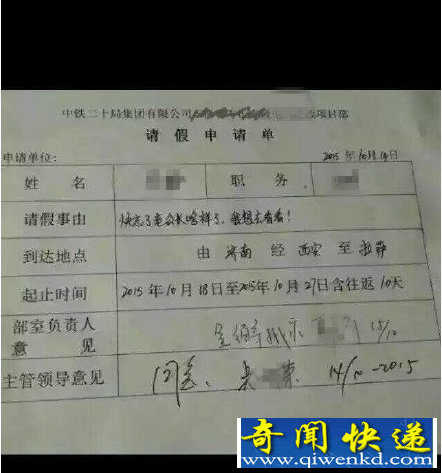 中铁二十局集团有限公司 项目部
请假申请单
申请单位： 2015年10月14日
姓名 职务
请假事由 快忘了老公长啥样了，我想去看看！
到达地点 由 济南 经 西安 至
起止时间 2015年10月18日至2015年10月27日含往返10天
部室负责人意见 15/10
主管领导意见 同意. 14/10-2015
奇闻快递
www.qiwenkd.com